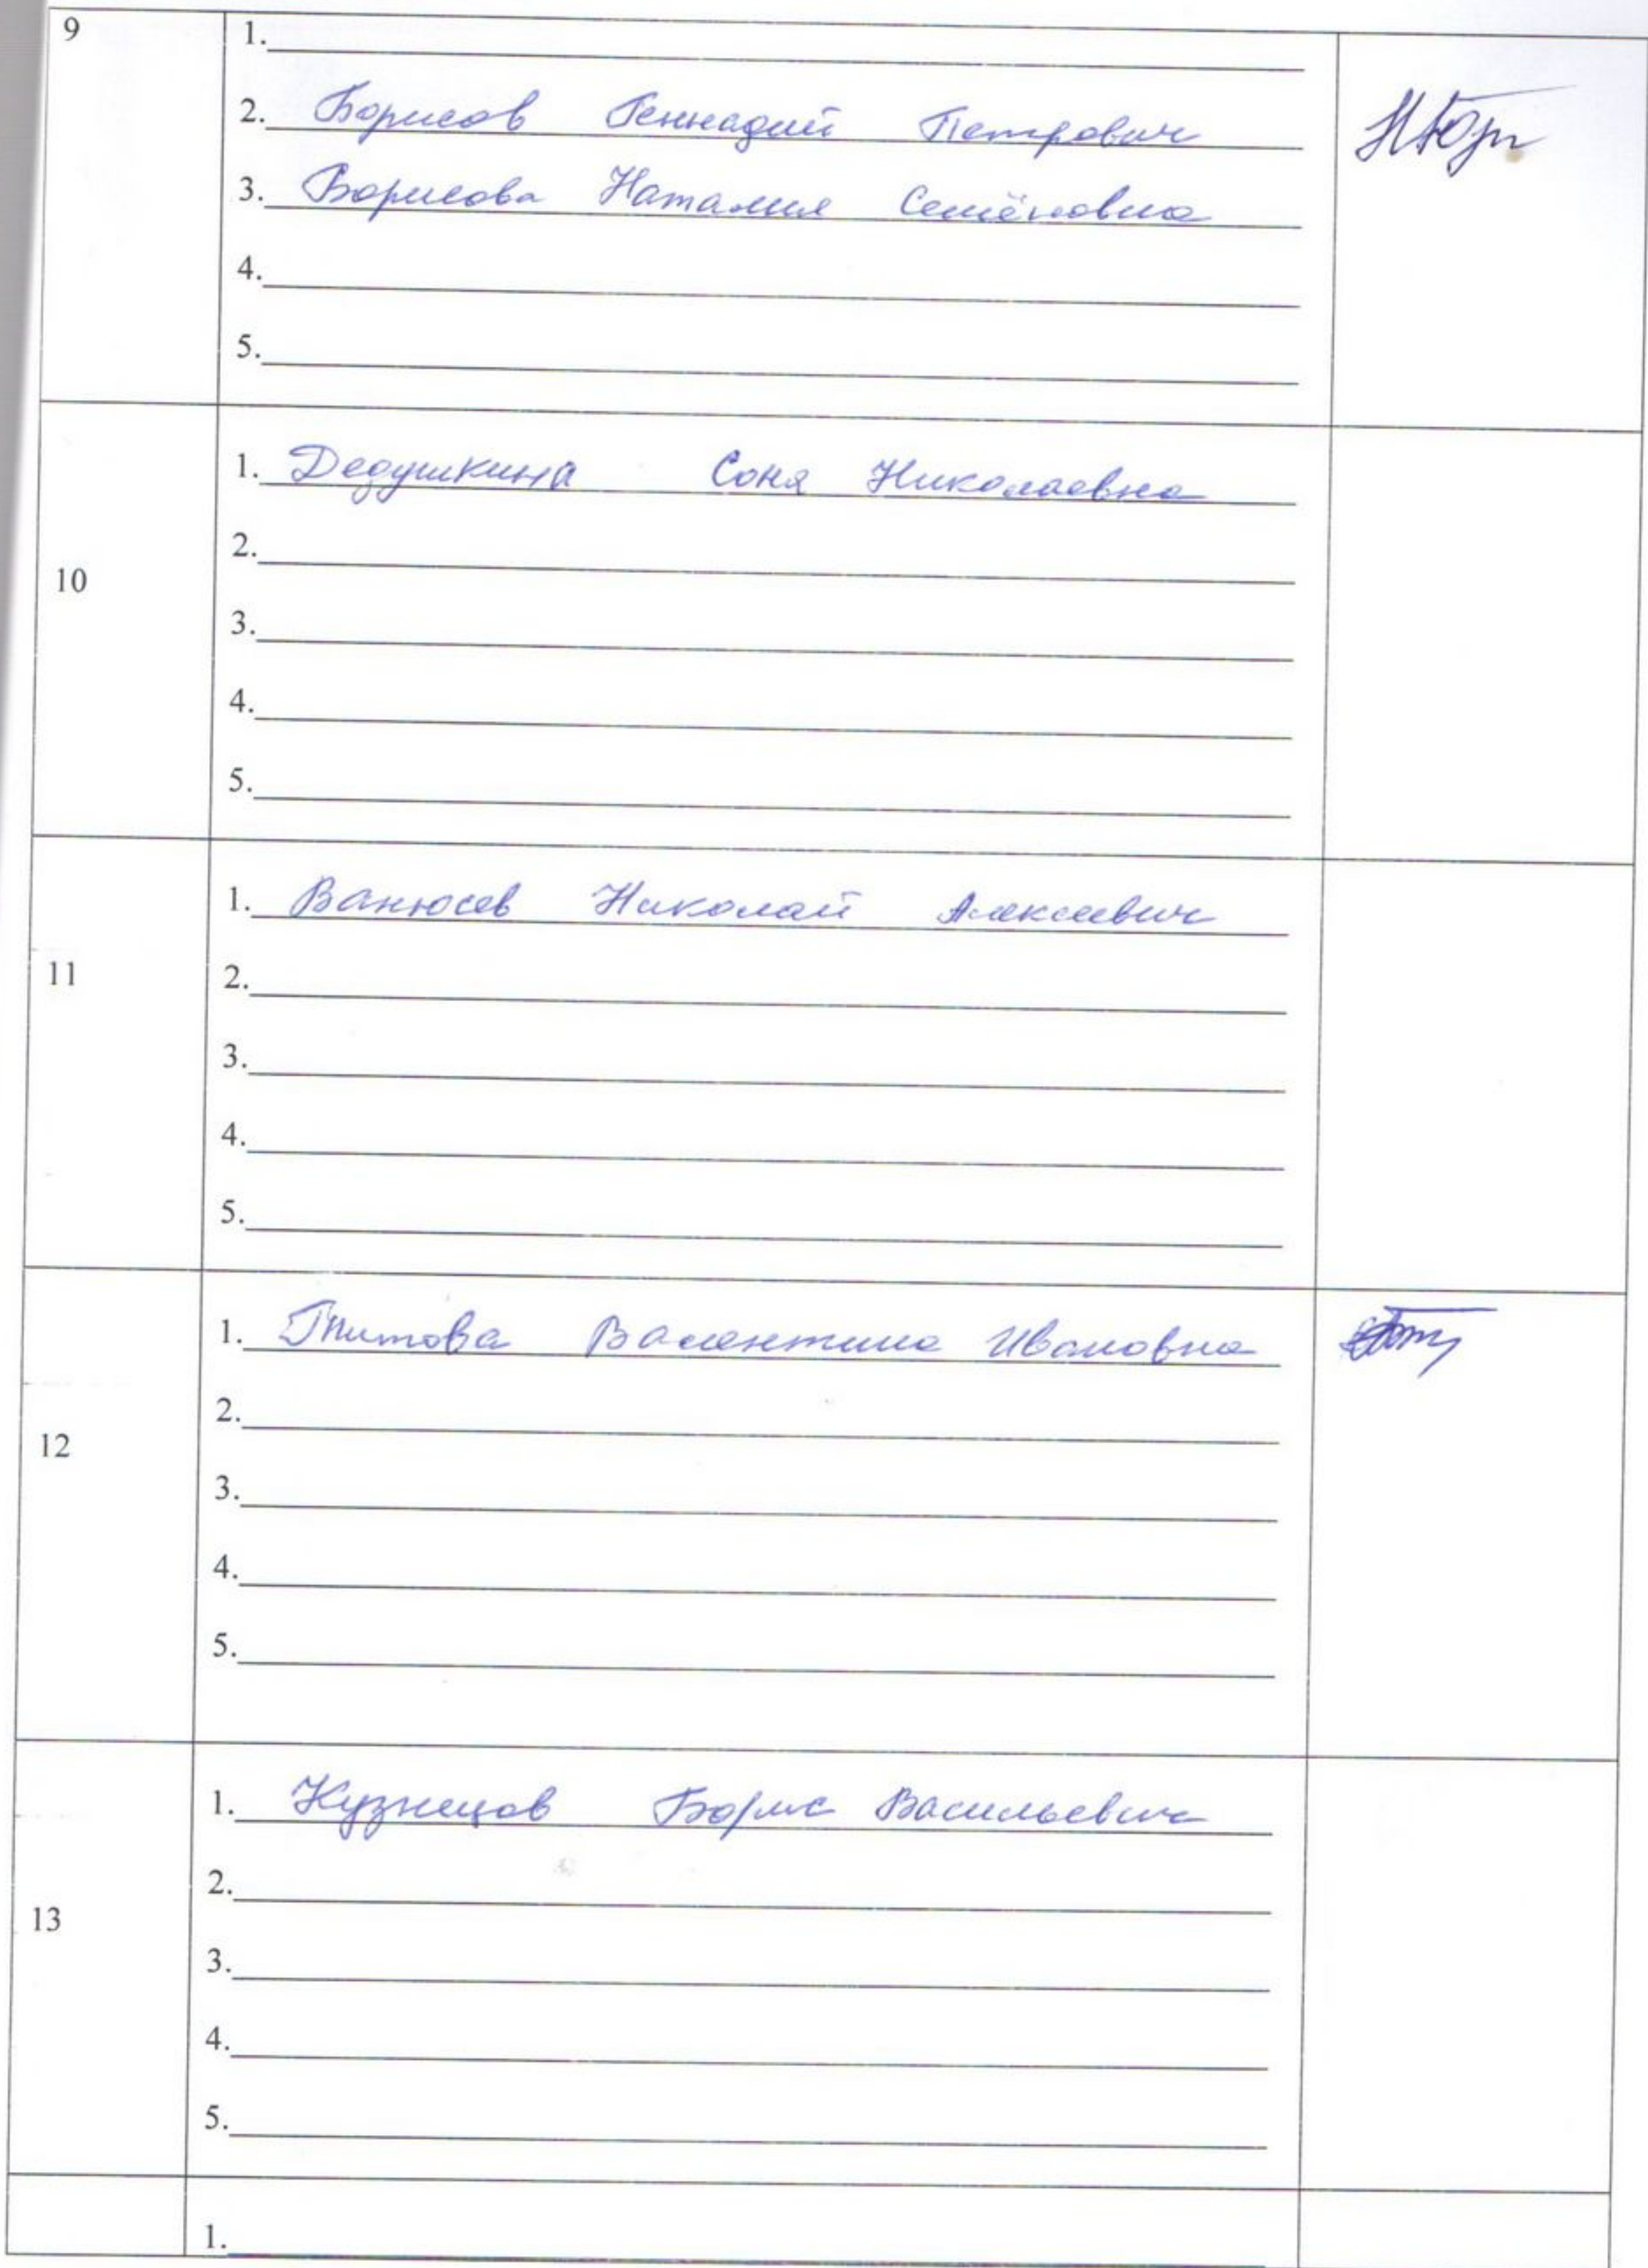 9
1.
2. Борисов Геннадий Петрович
3. Борисова Наталия Семёновна
4.
5.
10
1. Дедушкина Соня Николаевна
2.
3.
4.
5.
11
1. Ванюсев Николай Алексеевич
2.
3.
4.
5.
12
1. Титова Валентина Ивановна
2.
3.
4.
5.
13
1. Кузнецов Борис Васильевич
2.
3.
4.
5.
1.